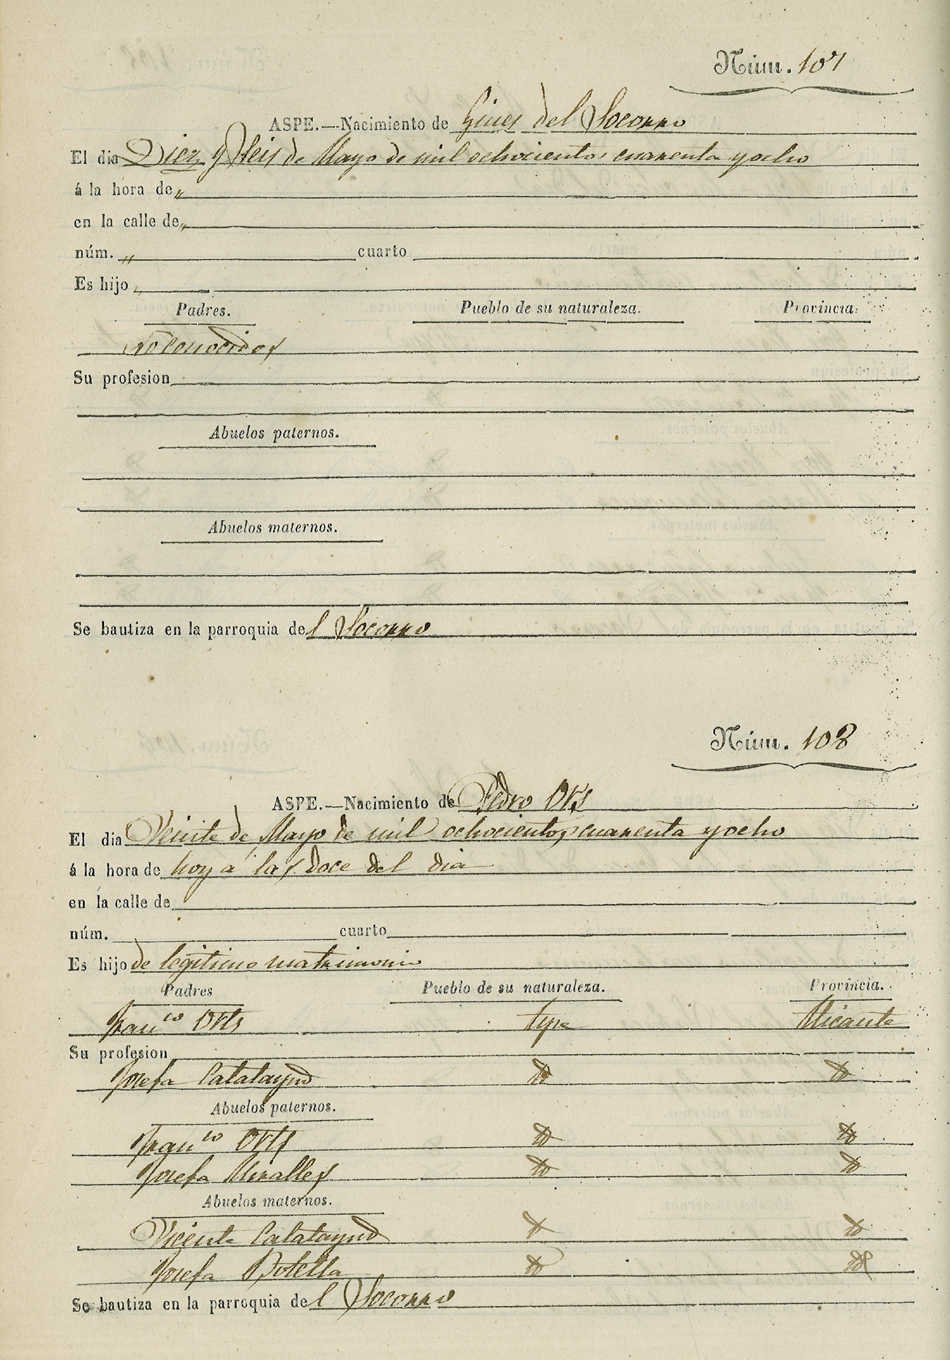 Núm. 107
ASPE.—Nacimiento de Gines del Socorro
El dia Diez y Seis de Mayo de mil ochocientos cuarenta y ocho
á la hora de „
en la calle de „
núm. „ cuarto
Es hijo „
Padres. Pueblo de su naturaleza. Provincia.
No conocidos
Su profesion
Abuelos paternos.
Abuelos maternos.
Se bautiza en la parroquia del Socorro
Núm. 108
ASPE.—Nacimiento de Pedro Orts
El dia Veinte de Mayo de mil ochocientos cuarenta y ocho
á la hora de hoy a las doce del dia
en la calle de
núm. cuarto
Es hijo de legitimo matrimonio
Padres Pueblo de su naturaleza. Provincia.
Franco Orts Aspe Alicante
Su profesion
Josefa Calatayud
Abuelos paternos.
Franco Orts
Josefa Miralles
Abuelos maternos.
Vicente Calatayud
Josefa Botella
Se bautiza en la parroquia del Socorro